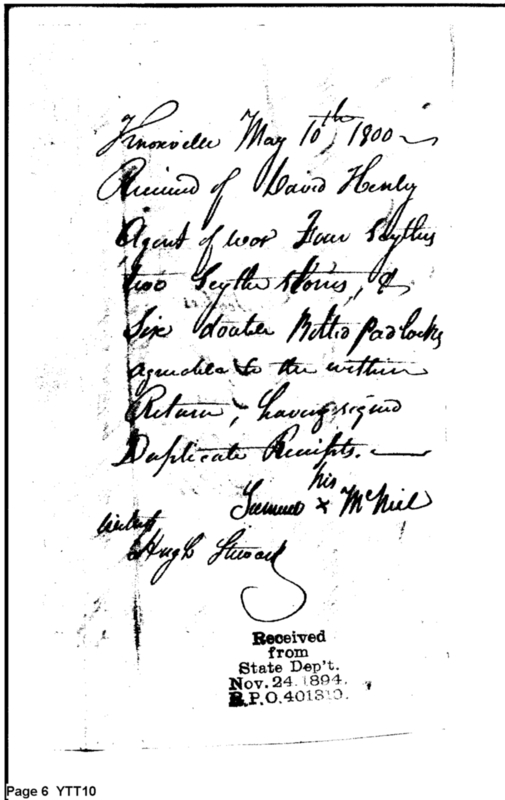 Knoxville May 10th, 1800
Received of David Henly
Agent of war Four Scythes
two Scythe stones, &
Six double Bitted padlocks
agreeable to the within
Return, having signed
Duplicate Receipts.
his
Samuel x McNiel
Hugh Steward
Received
from
State Dep't.
Nov. 24. 1894.
R.P.O. 401310.
Page 6 YTT10